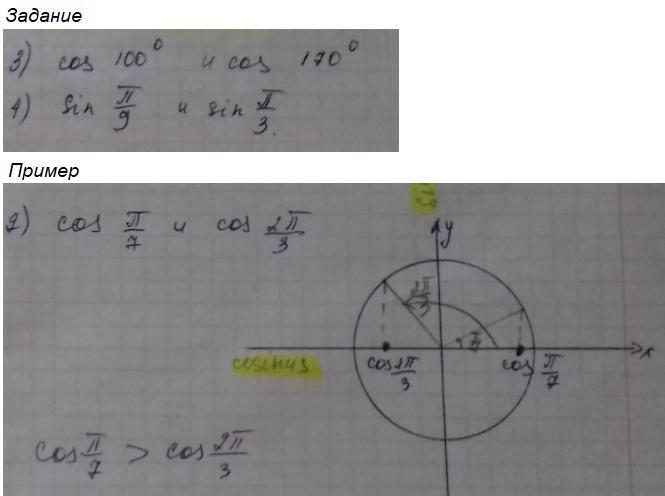 Задание
3) cos 100° и cos 170°
4) sin π/9 и sin π/3.
Пример
2) cos π/7 и cos 2π/3
y
2π/3
π/7
x
cosinus
cos 2π/3
cos π/7
cos π/7 > cos 2π/3